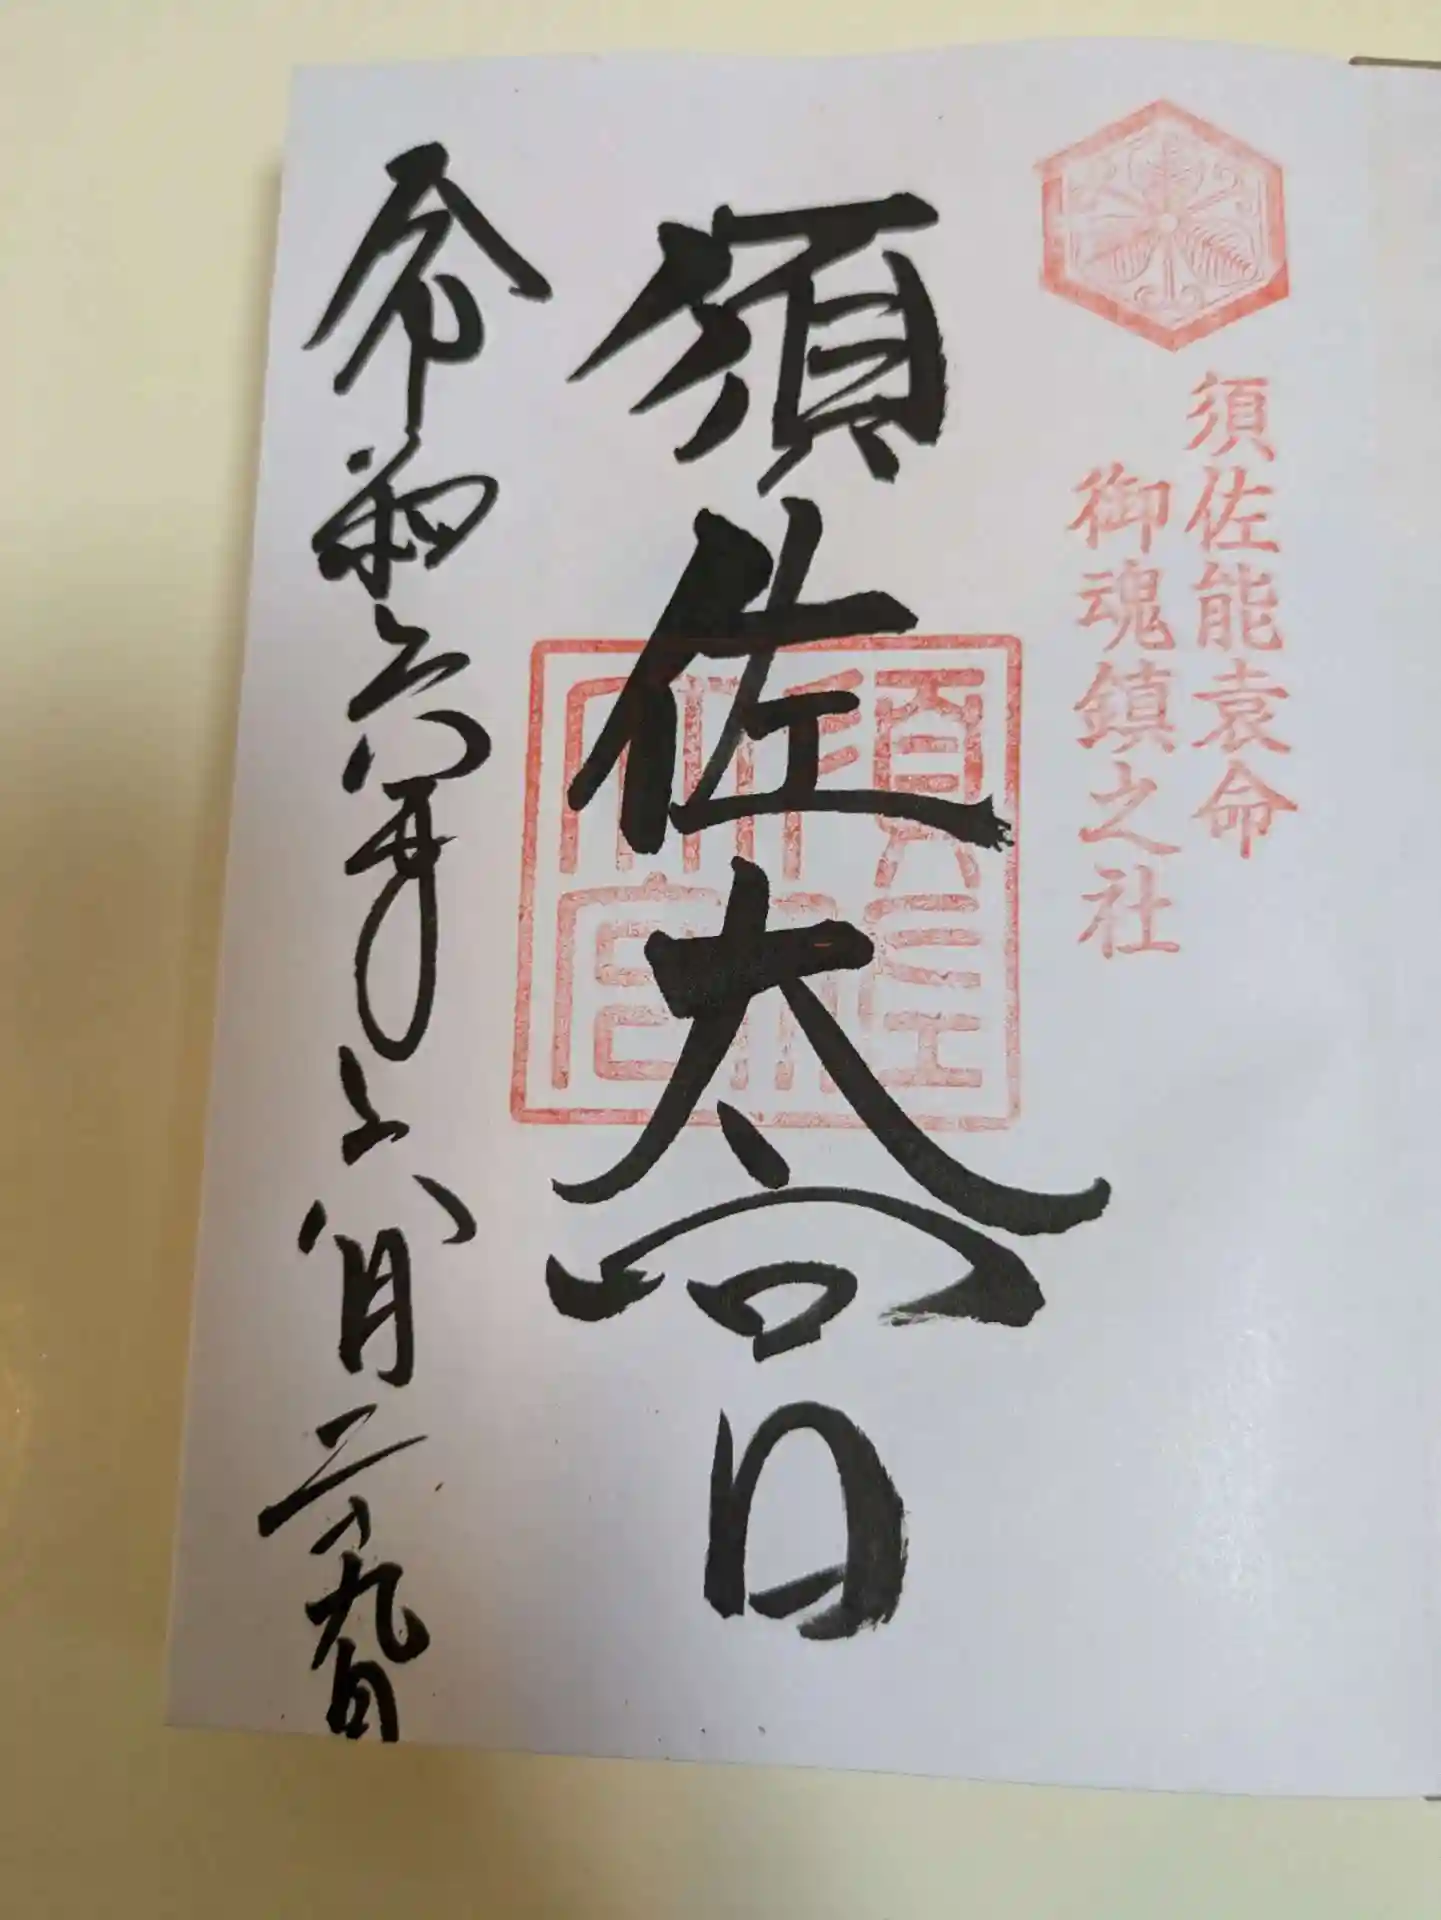 須佐能袁命
御魂鎮之社
須佐大宮
須佐
大宮
令和六年六月二十九日